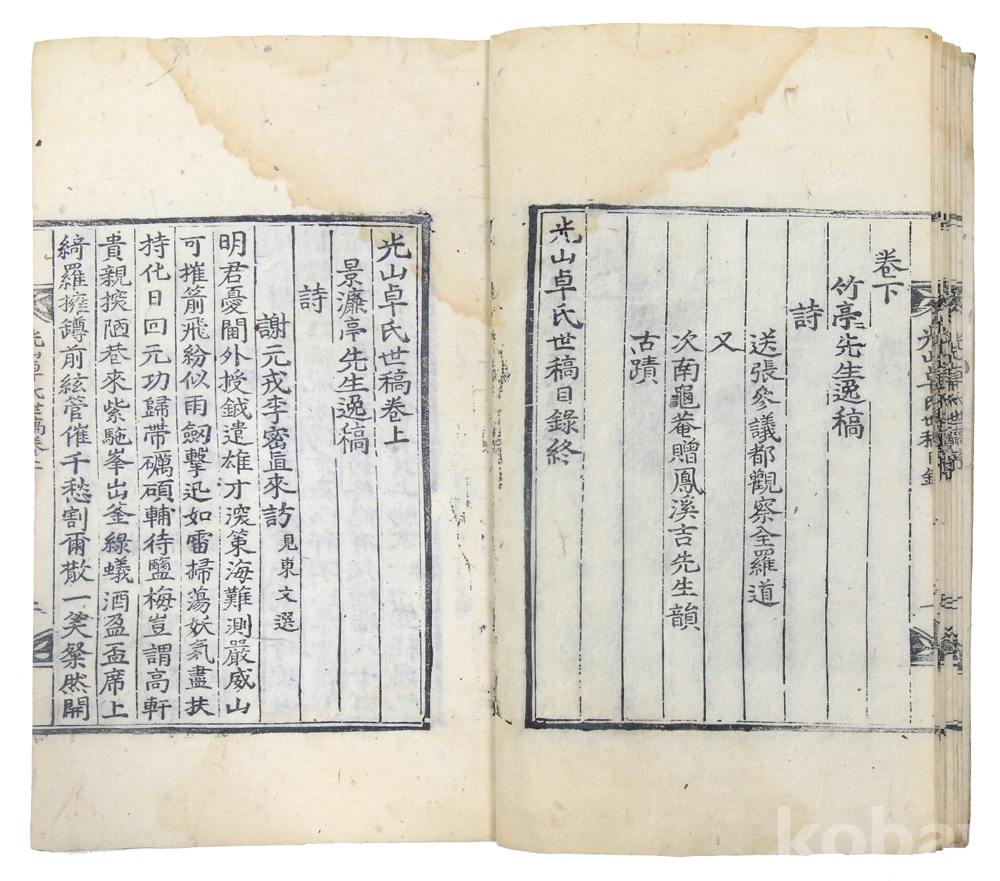 卷下
竹亭先生逸稿
詩
送張參議都觀察全羅道
又
次南龜菴贈鳳溪吉先生韻
古蹟
光山卓氏世稿目錄終
光山卓氏世稿卷上
景濂亭先生逸稿
詩
謝元戎李密直來訪 見東文選
明君憂閫外授鉞遣雄才深策海難測嚴威山
可摧箭飛紛似雨劒擊迅如雷掃蕩妖氣盡扶
持化日回元功歸帶礪碩輔待鹽梅豈謂高軒
貴親探陋巷來紫駞峯出釜綠蟻酒盈盃席上
綺羅擁鐏前絃管催千愁割爾散一笑粲然開
光山卓氏世稿目錄
koba